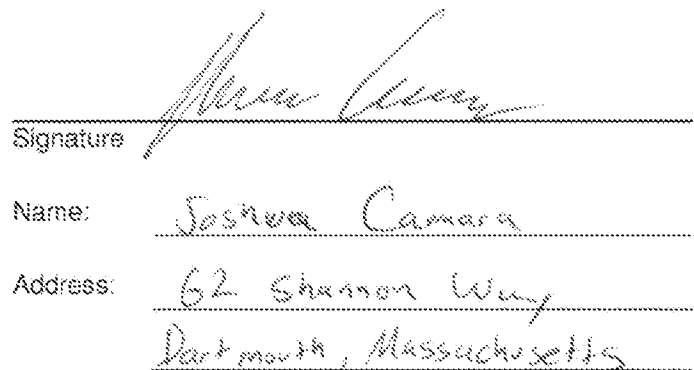 Signature
Name: Joshua Camara
Address: 62 Shannon Way
Dartmouth, Massachusetts